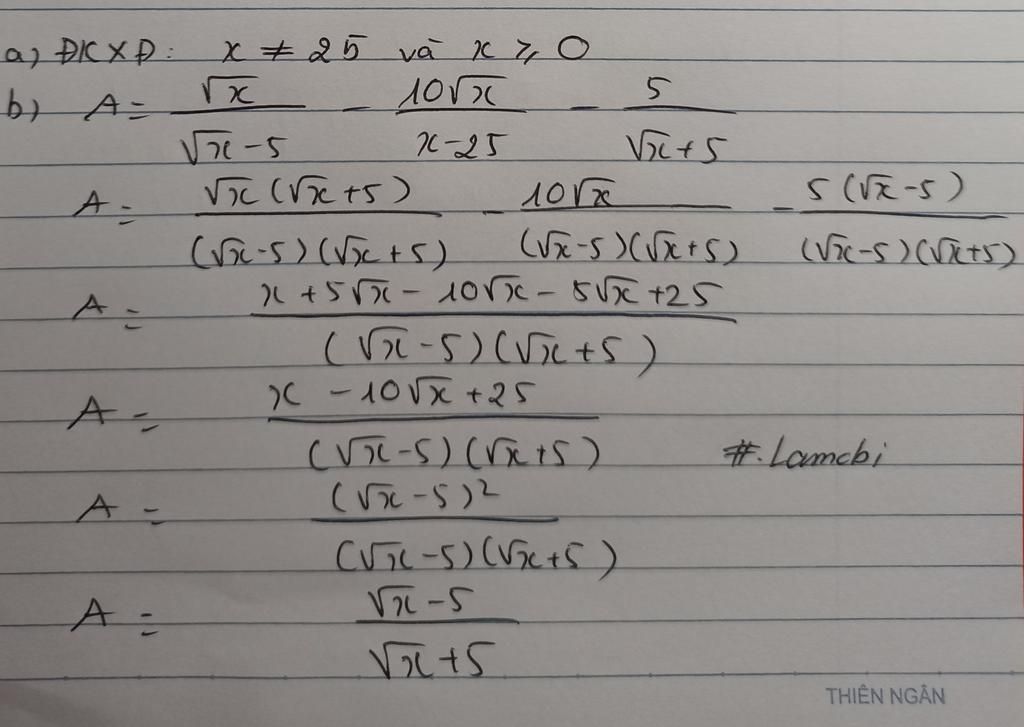 a) ĐKXĐ: x ≠ 25 và x ⩾ 0
b) A = √x / (√x - 5) - 10√x / (x - 25) - 5 / (√x + 5)
A = √x (√x + 5) / (√x - 5)(√x + 5) - 10√x / (√x - 5)(√x + 5) - 5(√x - 5) / (√x - 5)(√x + 5)
A = x + 5√x - 10√x - 5√x + 25 / (√x - 5)(√x + 5)
A = x - 10√x + 25 / (√x - 5)(√x + 5)
#.Lamchi
A = (√x - 5)² / (√x - 5)(√x + 5)
A = √x - 5 / √x + 5
THIÊN NGÂN